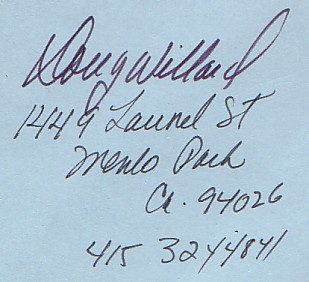 Doug Willard
1449 Laurel St
Menlo Park
Ca. 94026
415 3244841